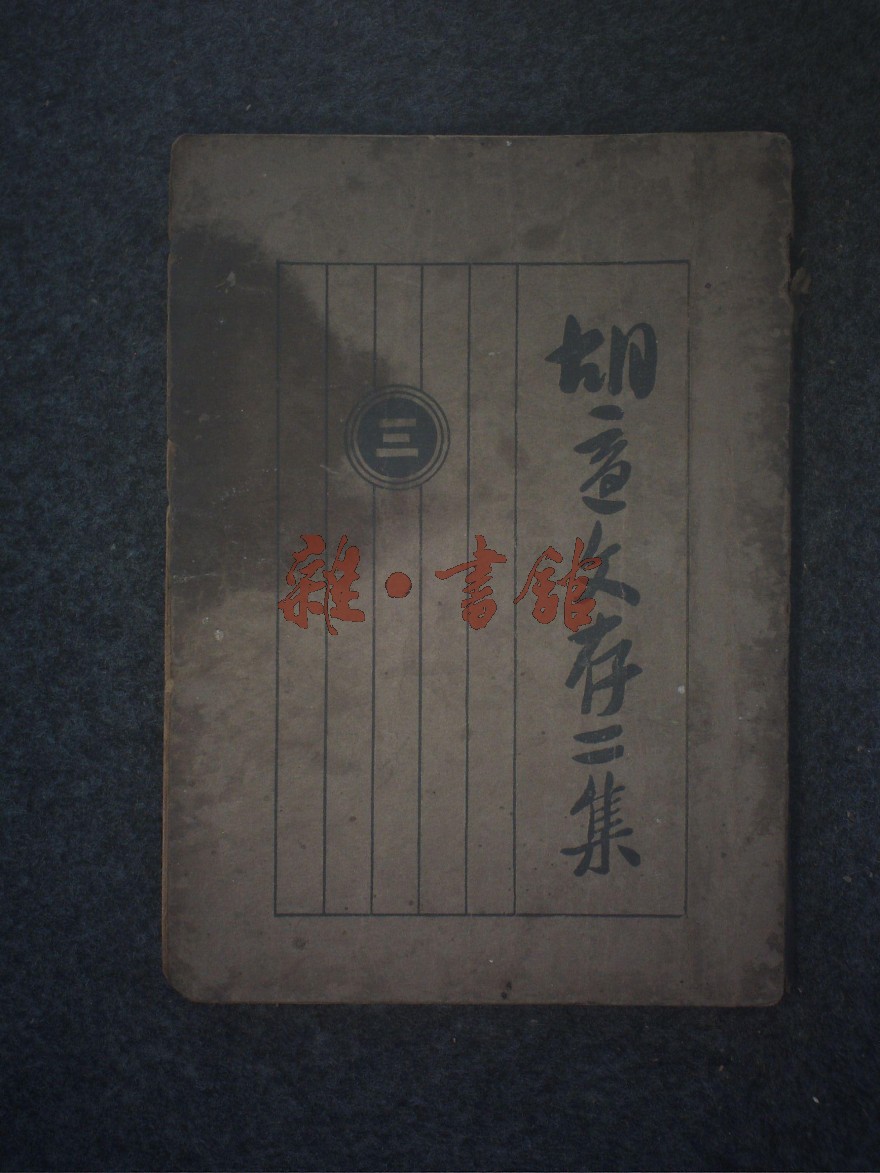 胡適文存二集
三
雜·書館